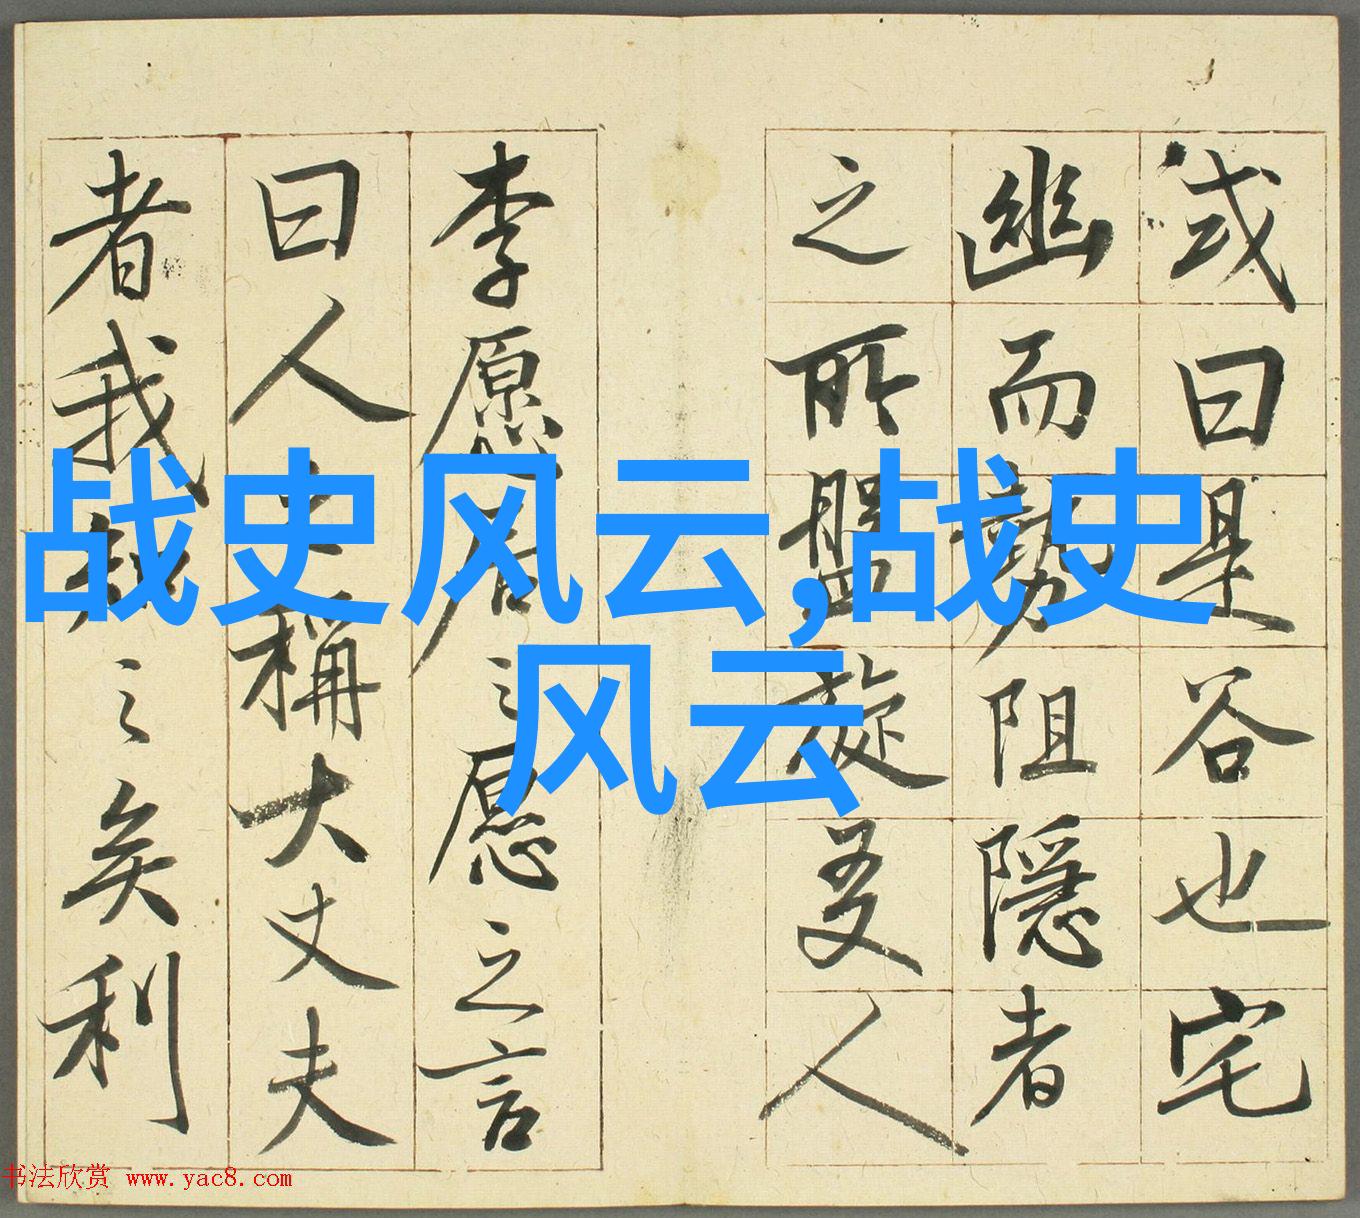 或曰是谷也宅
幽而勢阻隱者
之所盤旋友人
李愿居之愿之言
曰人之稱大丈夫
者我知之矣利
战史风云,战史
风云
书法欣赏 www.yac8.com